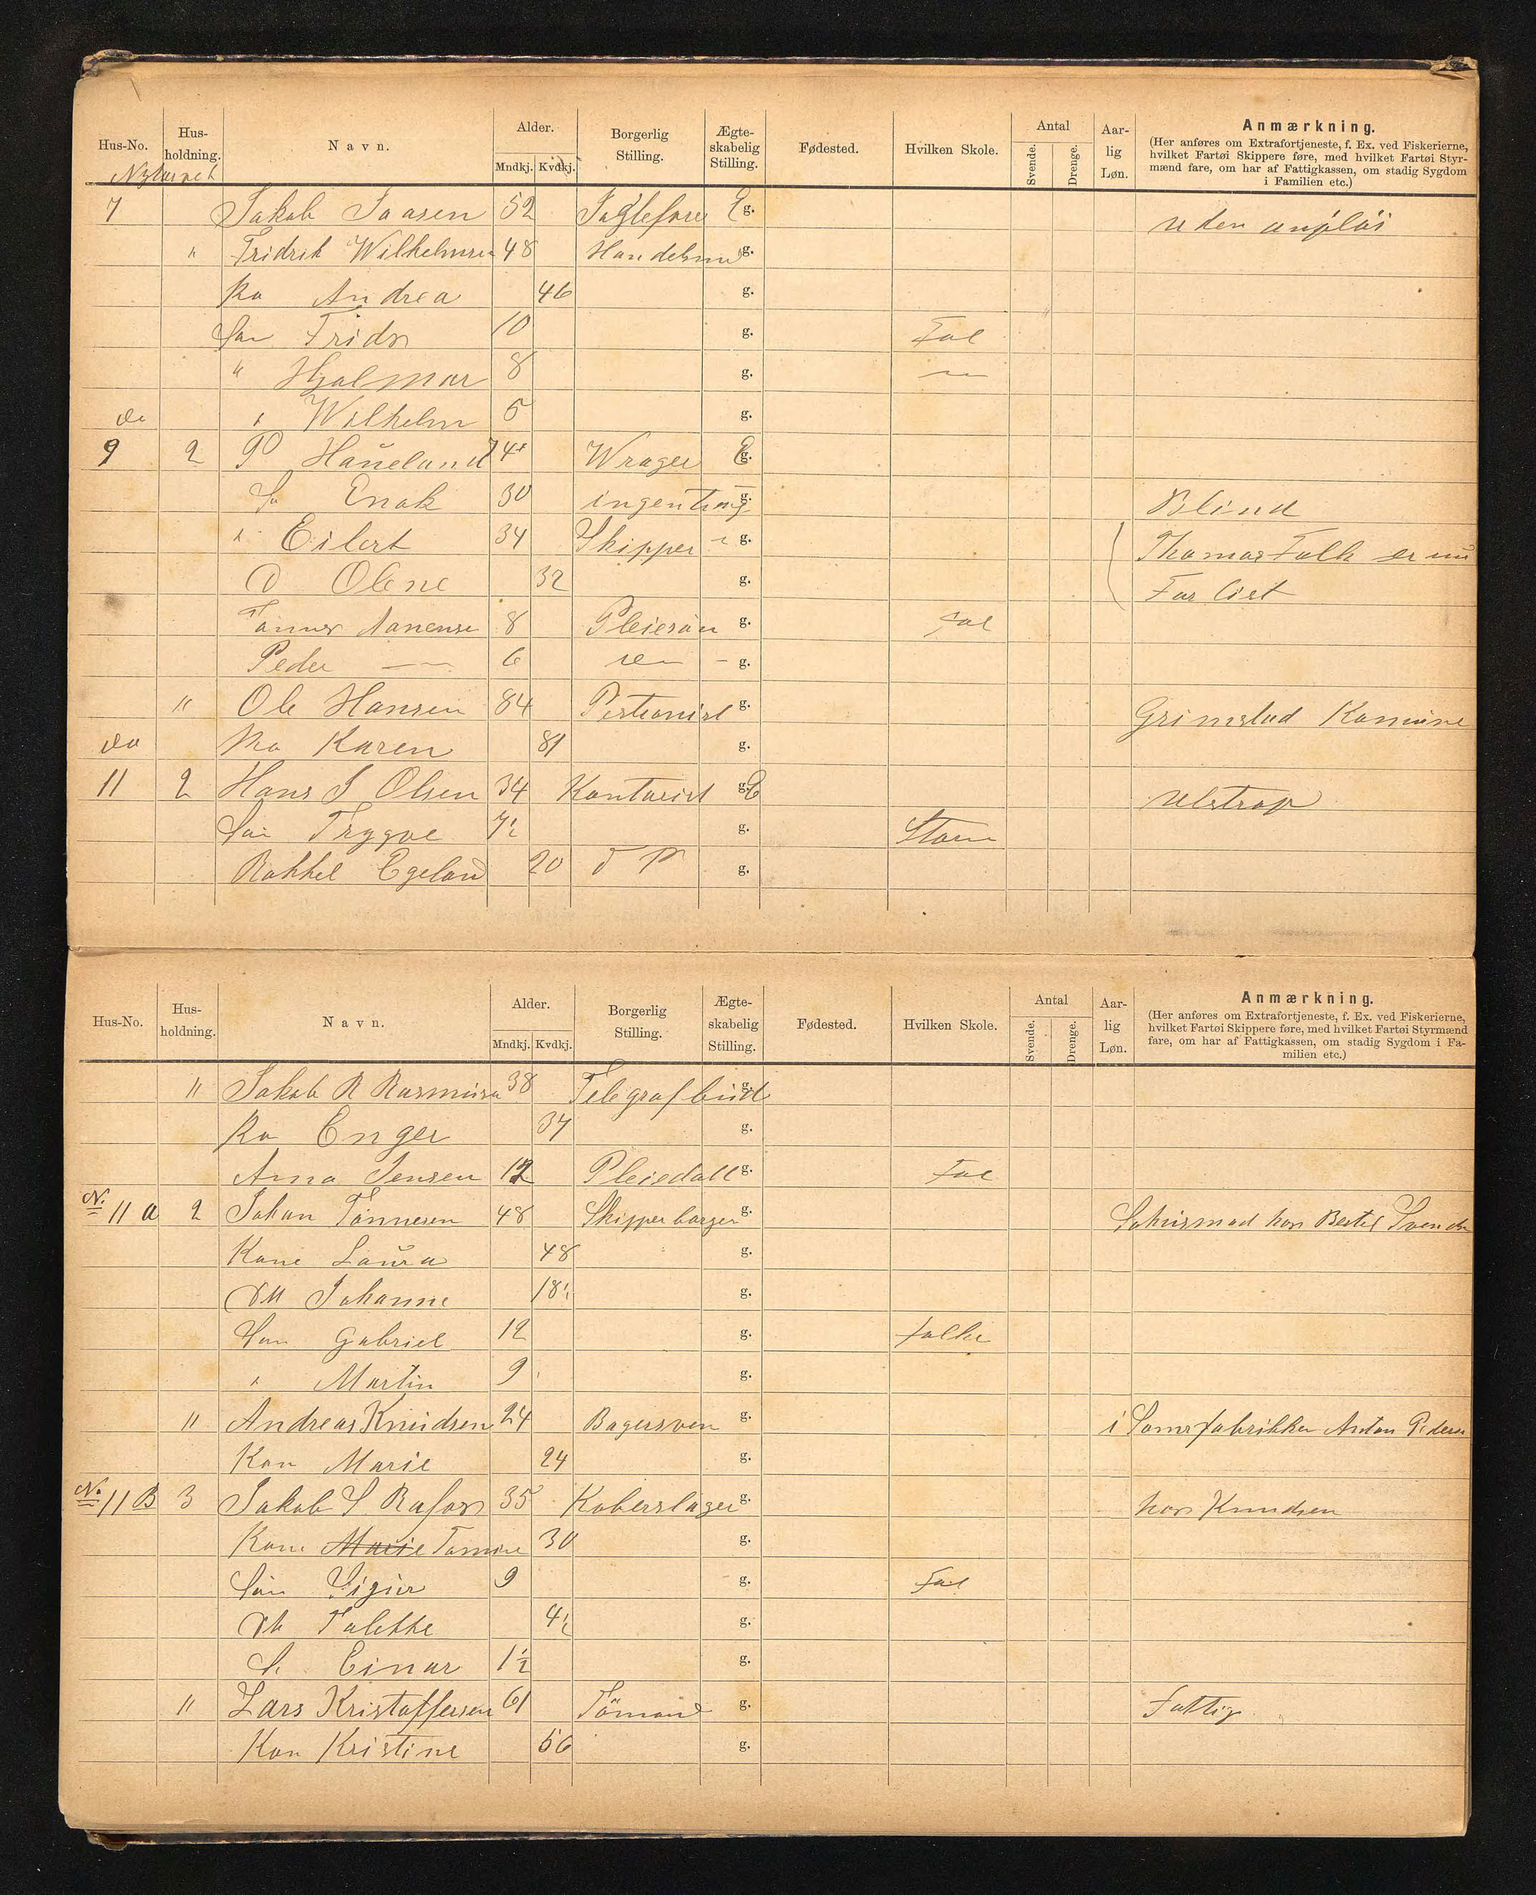 Hus-No. Hus-holdning. Navn. Alder. Mndkj. Kvdkj. Borgerlig Stilling. Ægte-skabelig Stilling. Fødested. Hvilken Skole. Antal Svende. Drenge. Aar-lig Løn. Anmærkning.
(Her anføres om Extrafortjeneste, f. Ex. ved Fiskerierne,
hvilket Fartøi Skippere føre, med hvilket Fartøi Styr-
mænd fare, om har af Fattigkassen, om stadig Sygdom
i Familien etc.)
Nytorvet
7 Jakob Isasen 52 E g.
" Fridrik Wilhelmsen 48 g.
Ko Andrea 46 g.
Søn Fridr 10 g. Fol
" Hjalmar 8 g. —
do " Wilhelm 5 g.
9 2 P Haŭeland 74 Wrager E g.
Sø Enok 30 ingenting g. Blind
" Eilert 34 Skipper g. Thomas Falk er nu
D Olene 32 g. Forlist
Tønnes Aanense 8 Pleiesøn g. Fol
Peder — 6 g.
" Ole Hansen 84 g. Grimstad Komune
do Ko Karen 81 g.
11 2 Hans J Olsen 34 Kontorist g. E Ulstrop
Søn Trygve 7½ g.
Rakkel Egeland 20 g.
Hus-No. Hus-holdning. Navn. Alder. Mndkj. Kvdkj. Borgerlig Stilling. Ægte-skabelig Stilling. Fødested. Hvilken Skole. Antal Svende. Drenge. Aar-lig Løn. Anmærkning.
(Her anføres om Extrafortjeneste, f. Ex. ved Fiskerierne,
hvilket Fartøi Skippere føre, med hvilket Fartøi Styrmænd
fare, om har af Fattigkassen, om stadig Sygdom i Fa-
milien etc.)
" Jakob R Rasmusen 38 Telegrafbud g.
Ko Enger 37 g.
Anna Jensen 12 Pleiedatt g. Fol
No. 11 a 2 Johan Tønnesen 48 Skipperborger g. hos Bertel Svends
Kone Laŭra 48 g.
Dtt Johanne 18½ g.
Søn Gabriel 12 g. Folke
" Martin 9 g.
" Andreas Knudsen 24 Bagersven g. i Anton Peders
Kon Marie 24 g.
No 11 B 3 Jakob S Rafos 35 Koberslager g. hos Knudsen
Kone Marie Tomine 30 g.
Søn Sigur 9 g. Fol
Dtt Talekke 4½ g.
S. Einar 1½ g.
" Lars Kristoffersen 61 Tømand g. Fattig
Kon Kristine 56 g.